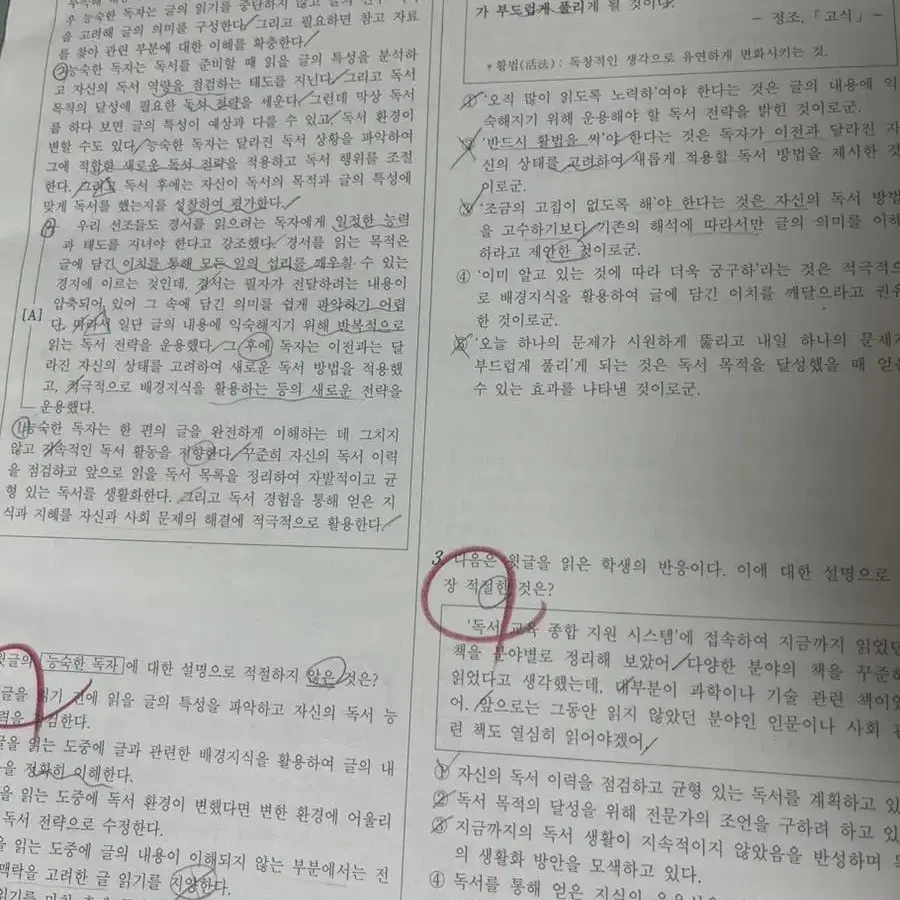 우 능숙한 독자는 글의 읽기를 중단하지 않고 글의
을 고려해 글의 의미를 구성한다. 그리고 필요하면 참고 자료
를 찾아 관련 부분에 대한 이해를 확충한다.
능숙한 독자는 독서를 준비할 때 읽을 글의 특성을 분석하
고 자신의 독서 역량을 점검하는 태도를 지닌다. 그리고 독서
목적의 달성에 필요한 독서 전략을 세운다. 그런데 막상 독서
를 하다 보면 글의 특성이 예상과 다를 수 있고, 독서 환경이
변할 수도 있다. 능숙한 독자는 달라진 독서 상황을 파악하여
그에 적합한 새로운 독서 전략을 적용하고 독서 행위를 조절
한다. 그리고 독서 후에는 자신이 독서의 목적과 글의 특성에
맞게 독서를 했는지를 성찰하여 평가한다.
우리 선조들도 경서를 읽으려는 독자에게 일정한 능력
과 태도를 지녀야 한다고 강조했다. 경서를 읽는 목적은
글에 담긴 이치를 통해 모든 일의 섭리를 깨우칠 수 있는
경지에 이르는 것인데, 경서는 필자가 전달하려는 내용이
압축되어 있어 그 속에 담긴 의미를 쉽게 파악하기 어렵
[A]
다. 따라서 일단 글의 내용에 익숙해지기 위해 반복적으로
읽는 독서 전략을 운용했다. 그 후에 독자는 이전과는 달
라진 자신의 상태를 고려하여 새로운 독서 방법을 적용했
고, 적극적으로 배경지식을 활용하는 등의 새로운 전략을
운용했다.
능숙한 독자는 한 편의 글을 완전하게 이해하는 데 그치지
않고 지속적인 독서 활동을 지향한다. 꾸준히 자신의 독서 이력
을 점검하고 앞으로 읽을 독서 목록을 정리하여 자발적이고 균
형 있는 독서를 생활화한다. 그리고 독서 경험을 통해 얻은 지
식과 지혜를 자신과 사회 문제의 해결에 적극적으로 활용한다.
윗글의 능숙한 독자 에 대한 설명으로 적절하지 않은 것은?
글을 읽기 전에 읽을 글의 특성을 파악하고 자신의 독서 능
력을 점검한다.
글을 읽는 도중에 글과 관련한 배경지식을 활용하여 글의 내
을 정확히 이해한다.
을 읽는 도중에 독서 환경이 변했다면 변한 환경에 어울리
독서 전략으로 수정한다.
을 읽는 도중에 글의 내용이 이해되지 않는 부분에서는 전
맥락을 고려한 글 읽기를 지양한다.
가 부드럽게 풀리게 될 것이다.
- 정조, 「고식」 -
* 활법(活法) : 독창적인 생각으로 유연하게 변화시키는 것.
① '오직 많이 읽도록 노력하'여야 한다는 것은 글의 내용에 익
숙해지기 위해 운용해야 할 독서 전략을 밝힌 것이로군.
② '반드시 활법을 써'야 한다는 것은 독자가 이전과 달라진 자
신의 상태를 고려하여 새롭게 적용할 독서 방법을 제시한 것
이로군.
③ '조금의 고집이 없도록 해'야 한다는 것은 자신의 독서 방법
을 고수하기보다 기존의 해석에 따라서만 글의 의미를 이해
하라고 제안한 것이로군.
④ '이미 알고 있는 것에 따라 더욱 궁구하'라는 것은 적극적으
로 배경지식을 활용하여 글에 담긴 이치를 깨달으라고 권유
한 것이로군.
⑤ '오늘 하나의 문제가 시원하게 뚫리고 내일 하나의 문제가
부드럽게 풀리'게 되는 것은 독서 목적을 달성했을 때 얻을
수 있는 효과를 나타낸 것이로군.
3. 다음은 윗글을 읽은 학생의 반응이다. 이에 대한 설명으로
장 적절한 것은?
'독서 교육 종합 지원 시스템'에 접속하여 지금까지 읽었던
책을 분야별로 정리해 보았어. 다양한 분야의 책을 꾸준히
읽었다고 생각했는데, 대부분이 과학이나 기술 관련 책이었
어. 앞으로는 그동안 읽지 않았던 분야인 인문이나 사회 관
련 책도 열심히 읽어야겠어.
① 자신의 독서 이력을 점검하고 균형 있는 독서를 계획하고 있
② 독서 목적의 달성을 위해 전문가의 조언을 구하려 하고 있
③ 지금까지의 독서 생활이 지속적이지 않았음을 반성하며 독
의 생활화 방안을 모색하고 있다.
④ 독서를 통해 얻은 지식의